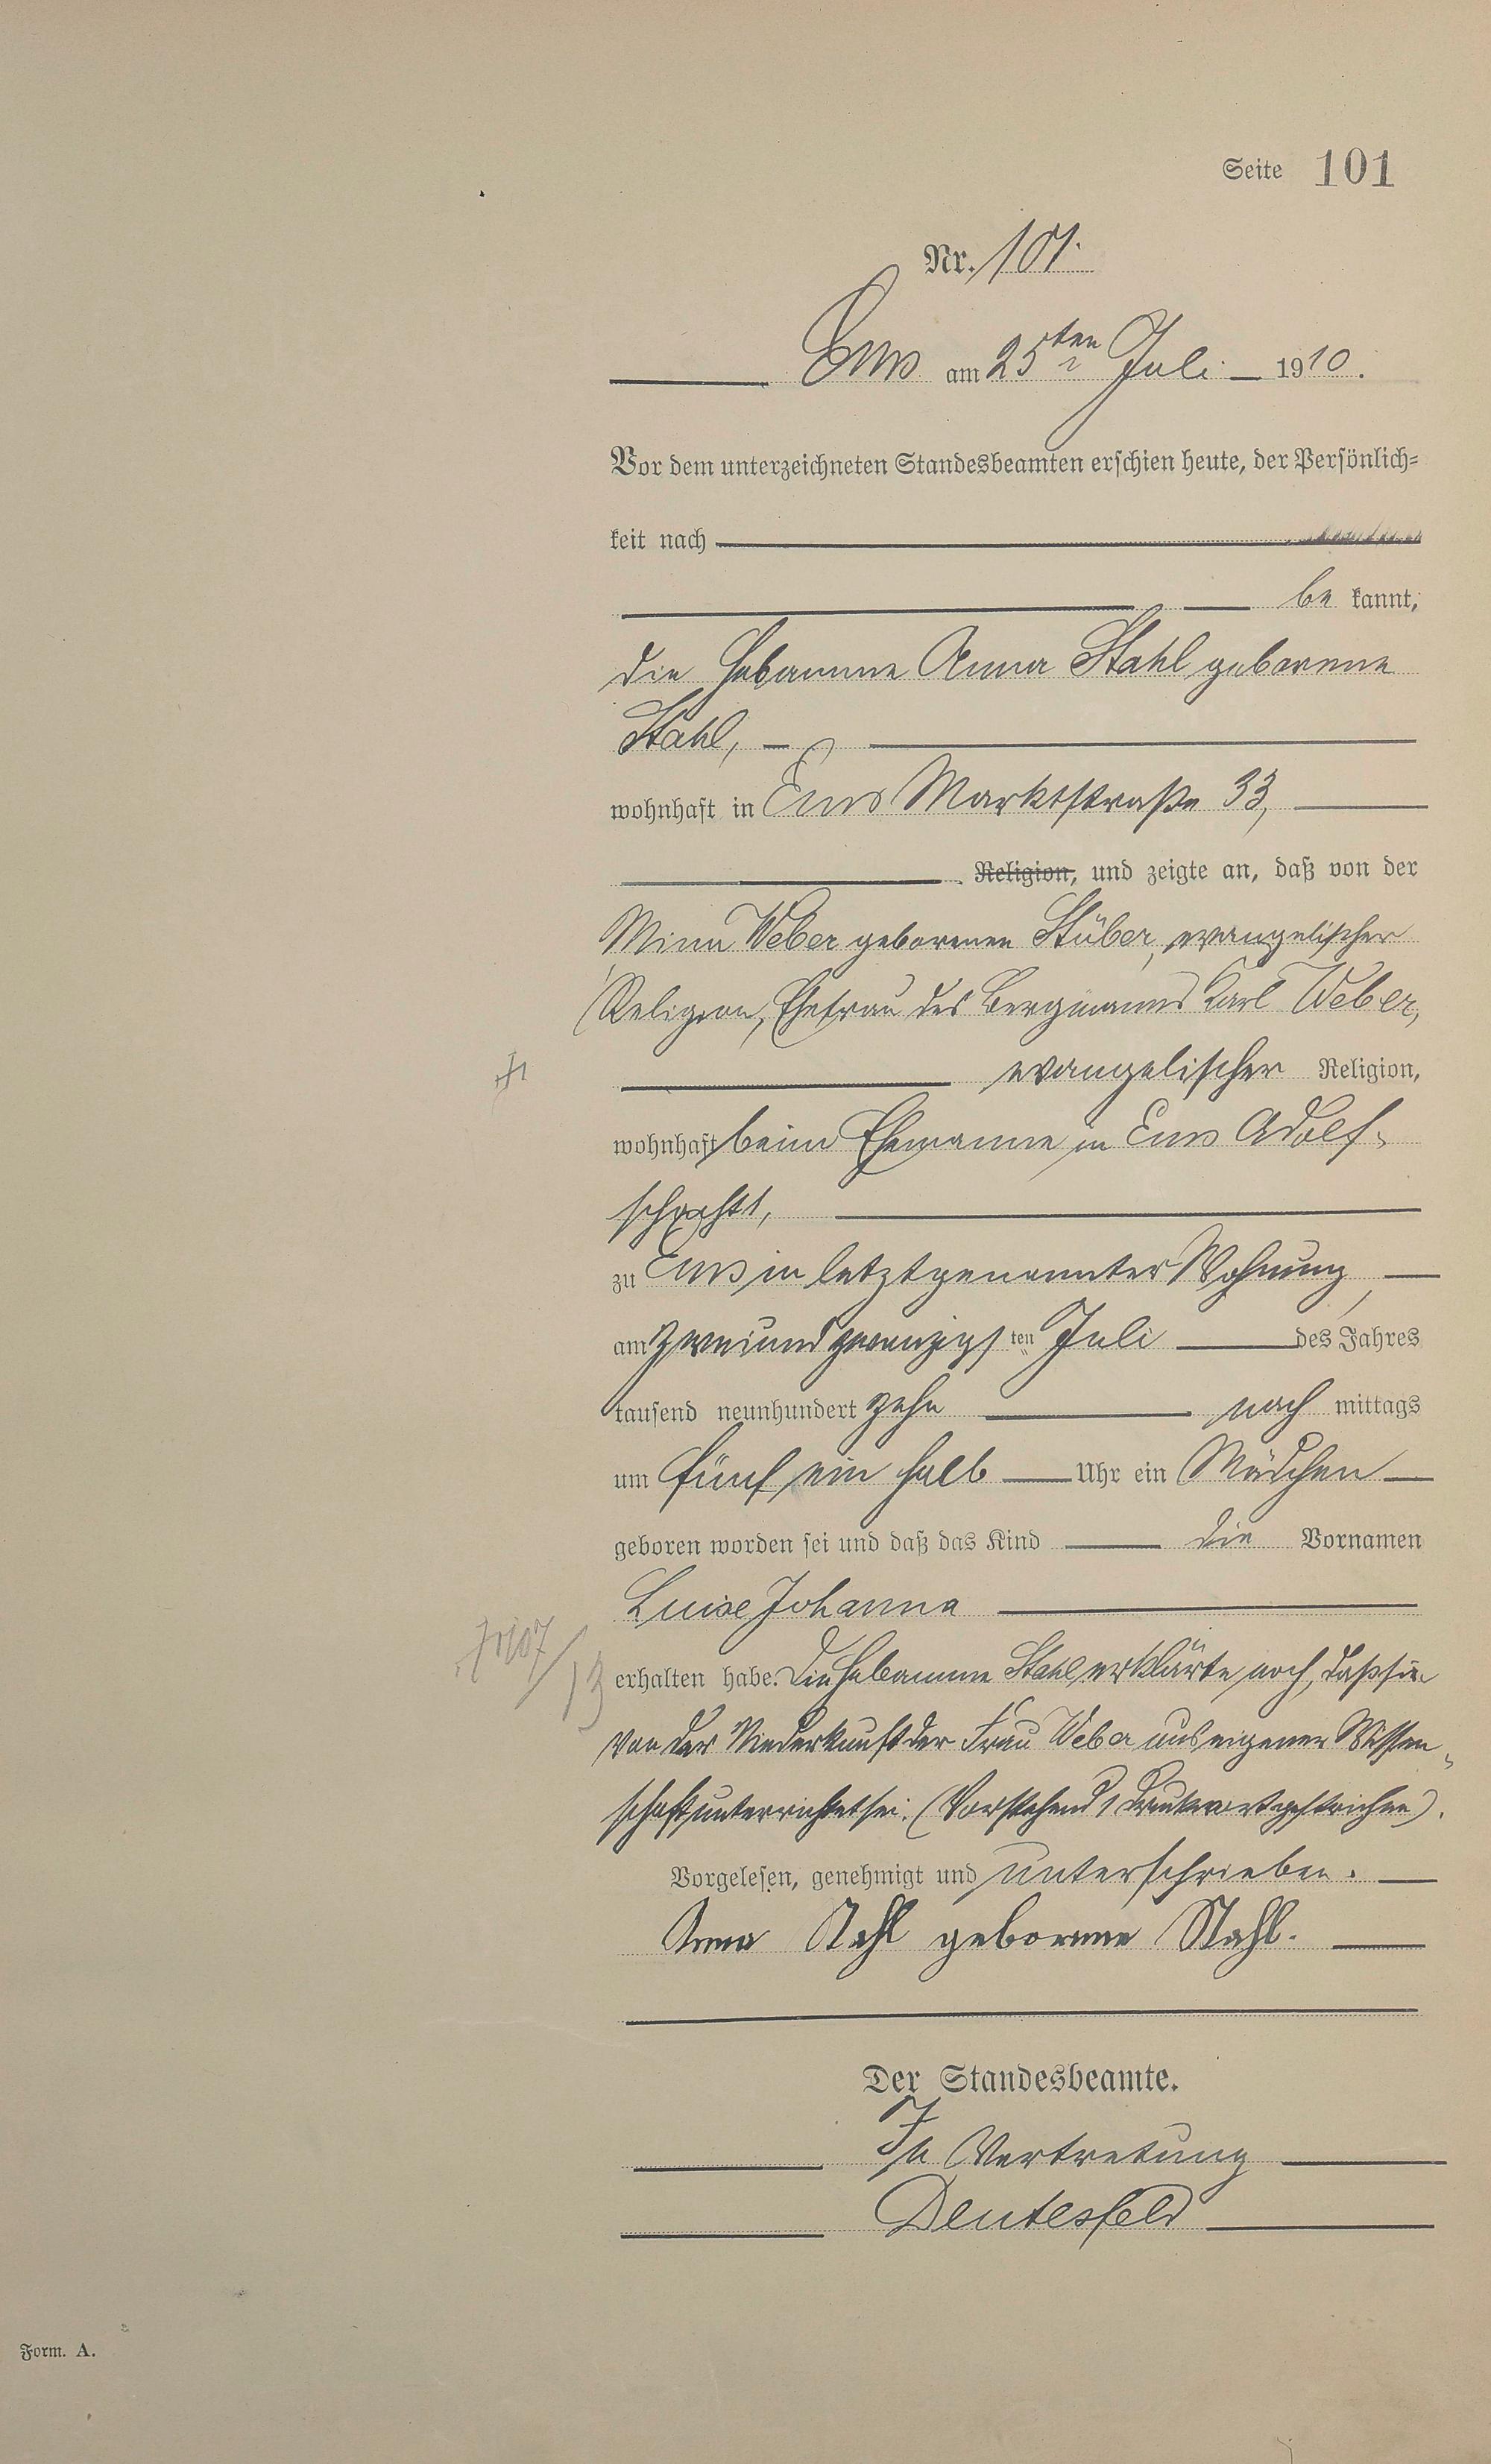 Seite 101
Nr. 101.
Ems am 25ten Juli 1910.
Vor dem unterzeichneten Standesbeamten erschien heute, der Persönlich=
keit nach
be kannt,
die Hebamme Anna Stahl geborene
Stahl,
wohnhaft in Ems Marktstraße 33,
Religion, und zeigte an, daß von der
Mina Weber geborenen Stüber, evangelischer
Religion, Ehefrau des Bergmanns Karl Weber,
evangelischer Religion,
wohnhaft beim Ehemanne in Ems Adolf-
schacht,
zu Ems in letztgenannter Wohnung,
am zweiundzwanzigsten Juli des Jahres
tausend neunhundert zehn nach mittags
um fünf ein halb Uhr ein Mädchen
geboren worden sei und daß das Kind die Vornamen
Luise Johanna
erhalten habe. Die Hebamme Stahl erklärte noch, daß sie
von der Niederkunft der Frau Weber aus eigener Wissen-
schaft unterrichtet sei. (Vorstehend 1 Druckwort gestrichen).
Vorgelesen, genehmigt und unterschrieben.
Anna Stahl geborene Stahl.
Der Standesbeamte.
In Vertretung
Deutesfeld
Form. A.